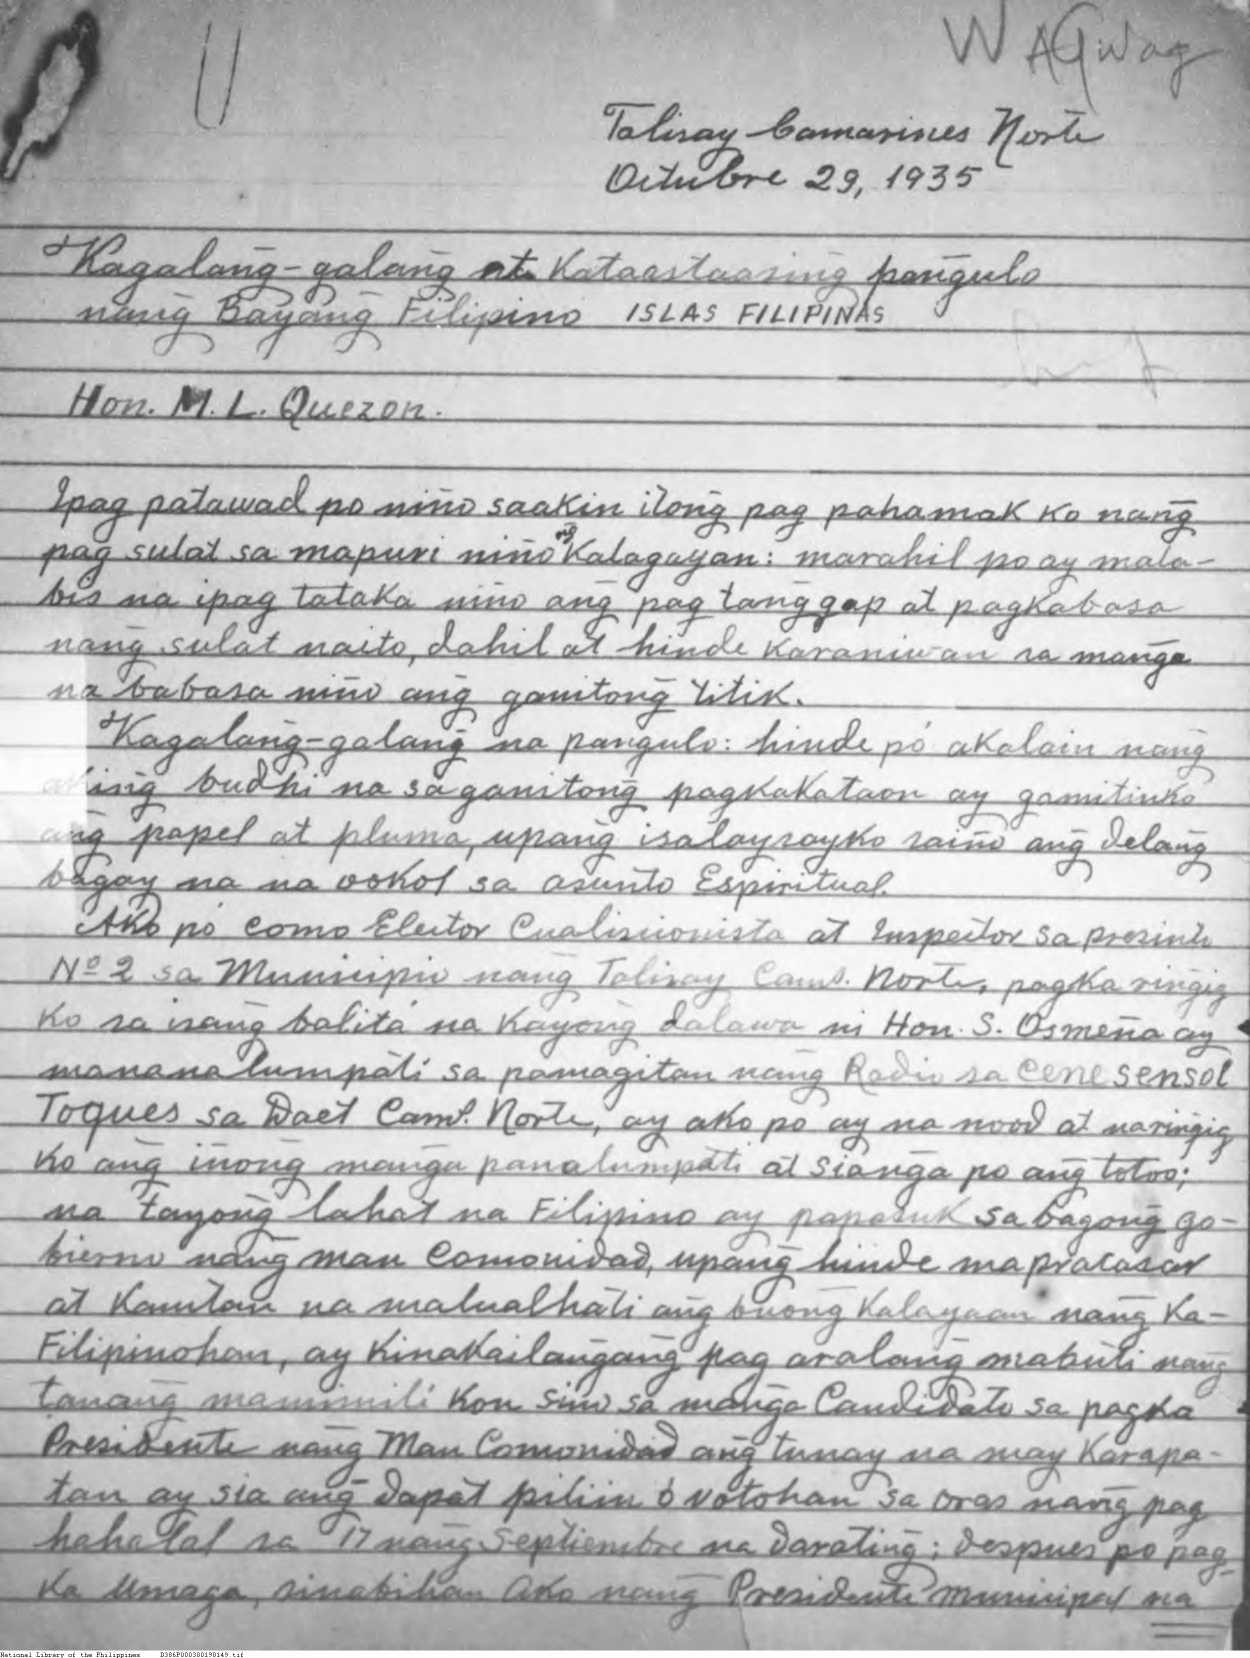 U
WAGwag
Talisay Camarines Norte
Octubre 29, 1935
Kagalang̃-galang̃ at Kataastaasing̃ pang̃ulo
nang̃ Bayang̃ Filipino ISLAS FILIPINAS
Hon. M. L. Quezon.
Ipag patawad po niño saakin itong̃ pag pahamak ko nang̃
pag sulat sa mapuri niño ng̃ Kalagayan: marahil po ay mala-
bis na ipag tataka niño ang̃ pag tang̃gap at pagkabasa
nang̃ sulat naito, dahil at hinde karaniwan sa mang̃a
na babasa niño ang̃ ganitong̃ titik.
Kagalang̃-galang̃ na pangulo: hinde pó akalain nang̃
aking̃ budhi na sa ganitong̃ pagkakataon ay gamitinko
ang̃ papel at pluma, upang̃ isalaysayko saiño ang̃ delang̃
bagay na na ookol sa asunto Espiritual.
Ako pó como Elector Cualicionista at Inspector sa presinto
Nº 2 sa Municipio nang̃ Talisay Cams. Norte, pagka ring̃ig
ko sa isang̃ balitá na kayong̃ dalawa ni Hon. S. Osmeña ay
mananalumpati sa pamagitan nang̃ Radio sa Cene sensol
Toques sa Daet Cams. Norte, ay ako po ay na nood at naring̃ig
ko ang̃ iñong mang̃a panalumpati at siang̃a po ang̃ totoo;
na tayong̃ lahat na Filipino ay papasuk sa bagong̃ go-
bierno nang̃ man Comonidad, upang̃ hinde ma pracasar
at kamtan na malualhati ang̃ buong̃ kalayaan nang̃ ka-
Filipinohan, ay kinakailang̃ang̃ pag aralang̃ mabuti nang̃
tanang̃ mamimili kon sino sa mang̃a Candidato sa pagka
Presidente nang̃ Man Comonidad ang̃ tunay na may karapa-
tan ay sia ang̃ dapat piliin ó votohan sa oras nang̃ pag
hahalal sa 17 nang̃ Septiembre na darating̃; despues po pag-
ka umaga, sinabihan ako nang̃ Presidente Municipal na
National Library of the Philippines D386P000380198149.tif